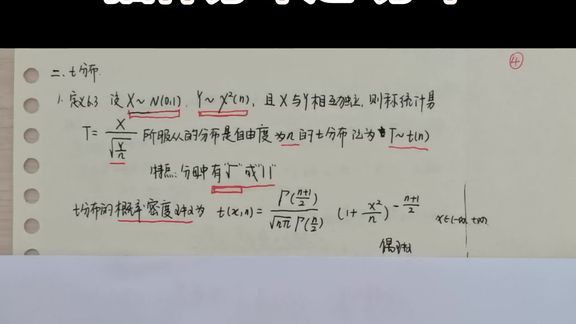 ④
二、t分布
1. 定义6.3 设 X~N(0,1), Y~χ²(n), 且X与Y相互独立, 则称统计量
T = X/√(Y/n) 所服从的分布是自由度为n的t分布 记为 T~t(n)
特点: 分母中有"√"或"| |"
t分布的概率密度函数为 t(x,n) = Γ((n+1)/2)/(√(nπ) Γ(n/2)) (1+x²/n)^(-(n+1)/2) x∈(-∞,+∞)
偶函数